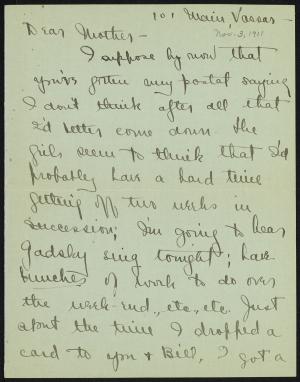 101 Main, Vassar,
Nov. 3, 1911
Dear Mother –
I suppose by now that
you've gotten my postal saying
I don't think after all that
I'd better come down. The
girls seem to think that I'd
probably have a hard time
getting off two weeks in
succession; I'm going to hear
Gadsby sing tonight; have
bunches of work to do over
the week-end, etc., etc. Just
about the time I dropped a
card to you & Bill, I got a